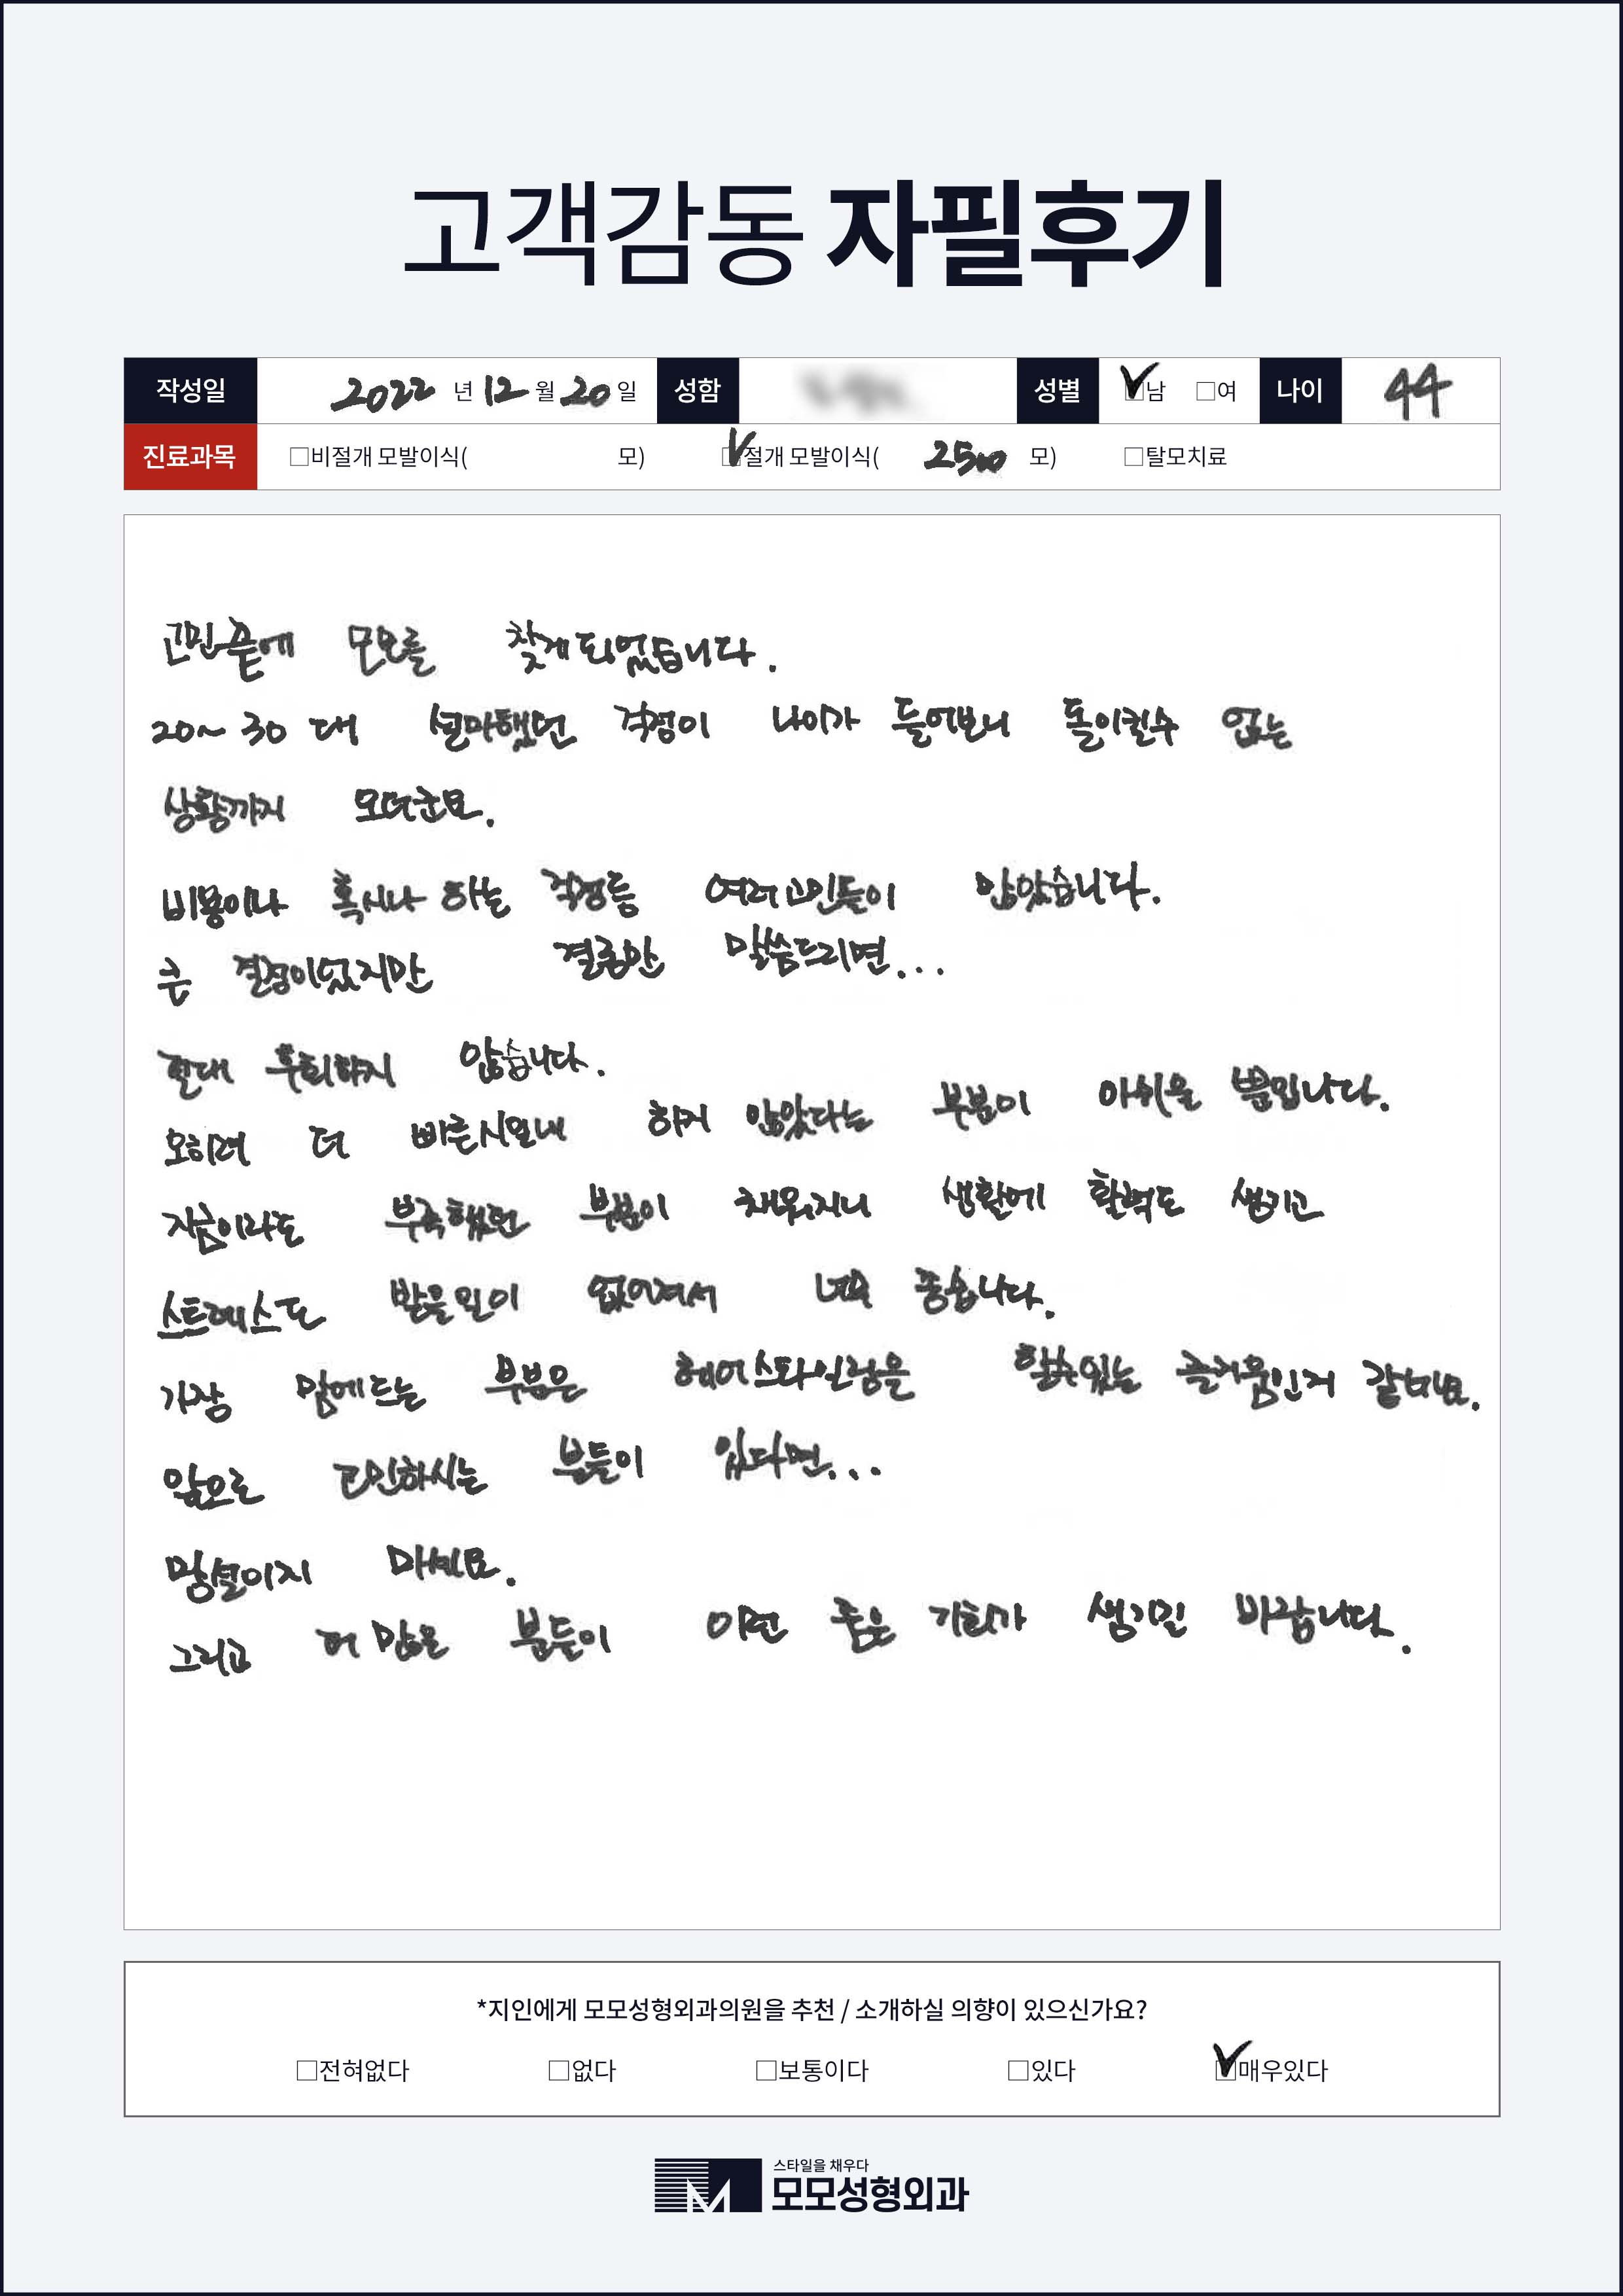 고객감동 자필후기
작성일 2022 년 12 월 20 일 성함 성별 ☑남 □여 나이 44
진료과목 □비절개 모발이식( 모) ☑절개 모발이식( 2500 모) □탈모치료
고민끝에 모모를 찾게되었습니다.
20~30대 설마했던 걱정이 나이가 들어보니 돌이킬수 없는
상황까지 오더군요.
비용이나 혹시나 하는 걱정등 여러고민들이 많았습니다.
큰 결정이었지만 결론만 말씀드리면...
절대 후회하지 않습니다.
오히려 더 빠른시일내 하지 않았다는 부분이 아쉬울 뿐입니다.
지금이라도 부족했던 부분이 채워지니 생활에 활력도 생기고
스트레스도 받을일이 없어져서 너무 좋습니다.
가장 맘에드는 부분은 헤어스타일링을 할수있는 즐거움인거 같네요.
앞으로 고민하시는 분들이 있다면...
망설이지 마세요.
그리고 더 많은 분들이 이런 좋은 기회가 생기길 바랍니다.
*지인에게 모모성형외과의원을 추천 / 소개하실 의향이 있으신가요?
□전혀없다 □없다 □보통이다 □있다 ☑매우있다
스타일을 채우다
모모성형외과